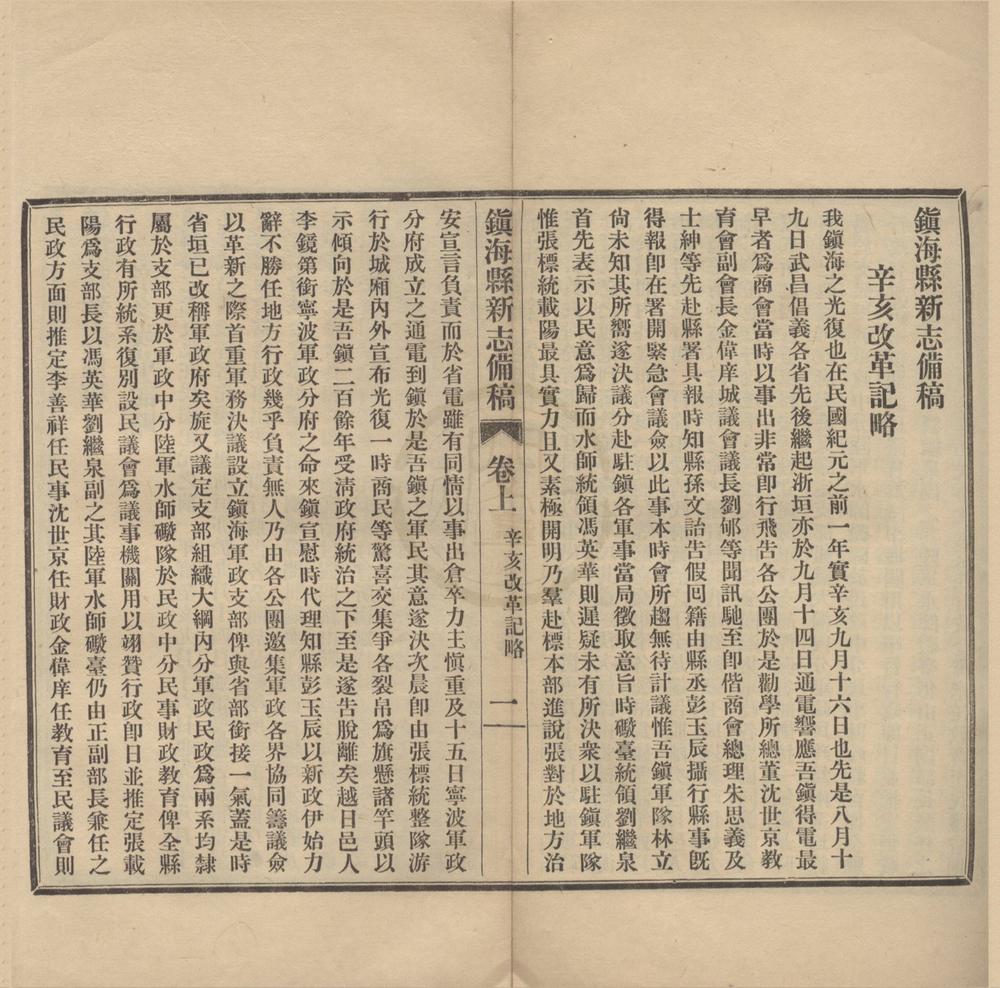 鎭海縣新志備稿
辛亥改革記略
我鎭海之光復也在民國紀元之前一年實辛亥九月十六日也先是八月十
九日武昌倡義各省先後繼起浙垣亦於九月十四日通電響應吾鎭得電最
早者爲商會當時以事出非常卽行飛告各公團於是勸學所總董沈世京敎
育會副會長金偉庠城議會議長劉郇等聞訊馳至卽偕商會總理朱思義及
士紳等先赴縣署具報時知縣孫文詒吿假回籍由縣丞彭玉辰攝行縣事旣
得報卽在署開緊急會議僉以此事本時會所趨無待計議惟吾鎭軍隊林立
尙未知其所嚮遂決議分赴駐鎭各軍事當局徵取意旨時礮臺統領劉繼泉
首先表示以民意爲歸而水師統領馮英華則遲疑未有所決衆以駐鎭軍隊
惟張標統載陽最具實力且又素極開明乃羣赴標本部進說張對於地方治
鎭海縣新志備稿
卷上
辛亥改革記略
一
安宣言負責而於省電雖有同情以事出倉卒力主愼重及十五日寧波軍政
分府成立之通電到鎭於是吾鎭之軍民其意遂決次晨卽由張標統整隊游
行於城廂內外宣布光復一時商民等驚喜交集爭各裂帛爲旗懸諸竿頭以
示傾向於是吾鎭二百餘年受淸政府統治之下至是遂吿脫離矣越日邑人
李鏡第銜寧波軍政分府之命來鎭宣慰時代理知縣彭玉辰以新政伊始力
辭不勝任地方行政幾乎負責無人乃由各公團邀集軍政各界協同籌議僉
以革新之際首重軍務決議設立鎭海軍政支部俾與省部銜接一氣蓋是時
省垣已改稱軍政府矣旋又議定支部組織大綱內分軍政民政爲兩系均隸
屬於支部更於軍政中分陸軍水師礮隊於民政中分民事財政敎育俾全縣
行政有所統系復別設民議會爲議事機關用以翊贊行政卽日並推定張載
陽爲支部長以馮英華劉繼泉副之其陸軍水師礮臺仍由正副部長兼任之
民政方面則推定李善祥任民事沈世京任財政金偉庠任敎育至民議會則